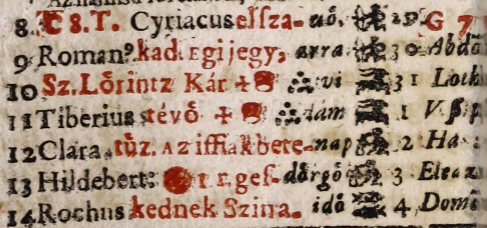 8. C 8. T. Cyriacus eſſza- uó, 29 G 7
9 Roman9 kad. Egi jegy, arra 30 Abdó
10 Sz. Lőrintz Kár ✝ vi 31 Loth
11 Tiberius tévő ✝ tám 1 V. ſ. p
12 Clara. tűz. Az iffiak bete- nap 2 Ha
13 Hildebert: 1. E. geſ- dörgő 3 Eleaz
14 Rochus kednek Szina. idő 4 Domi